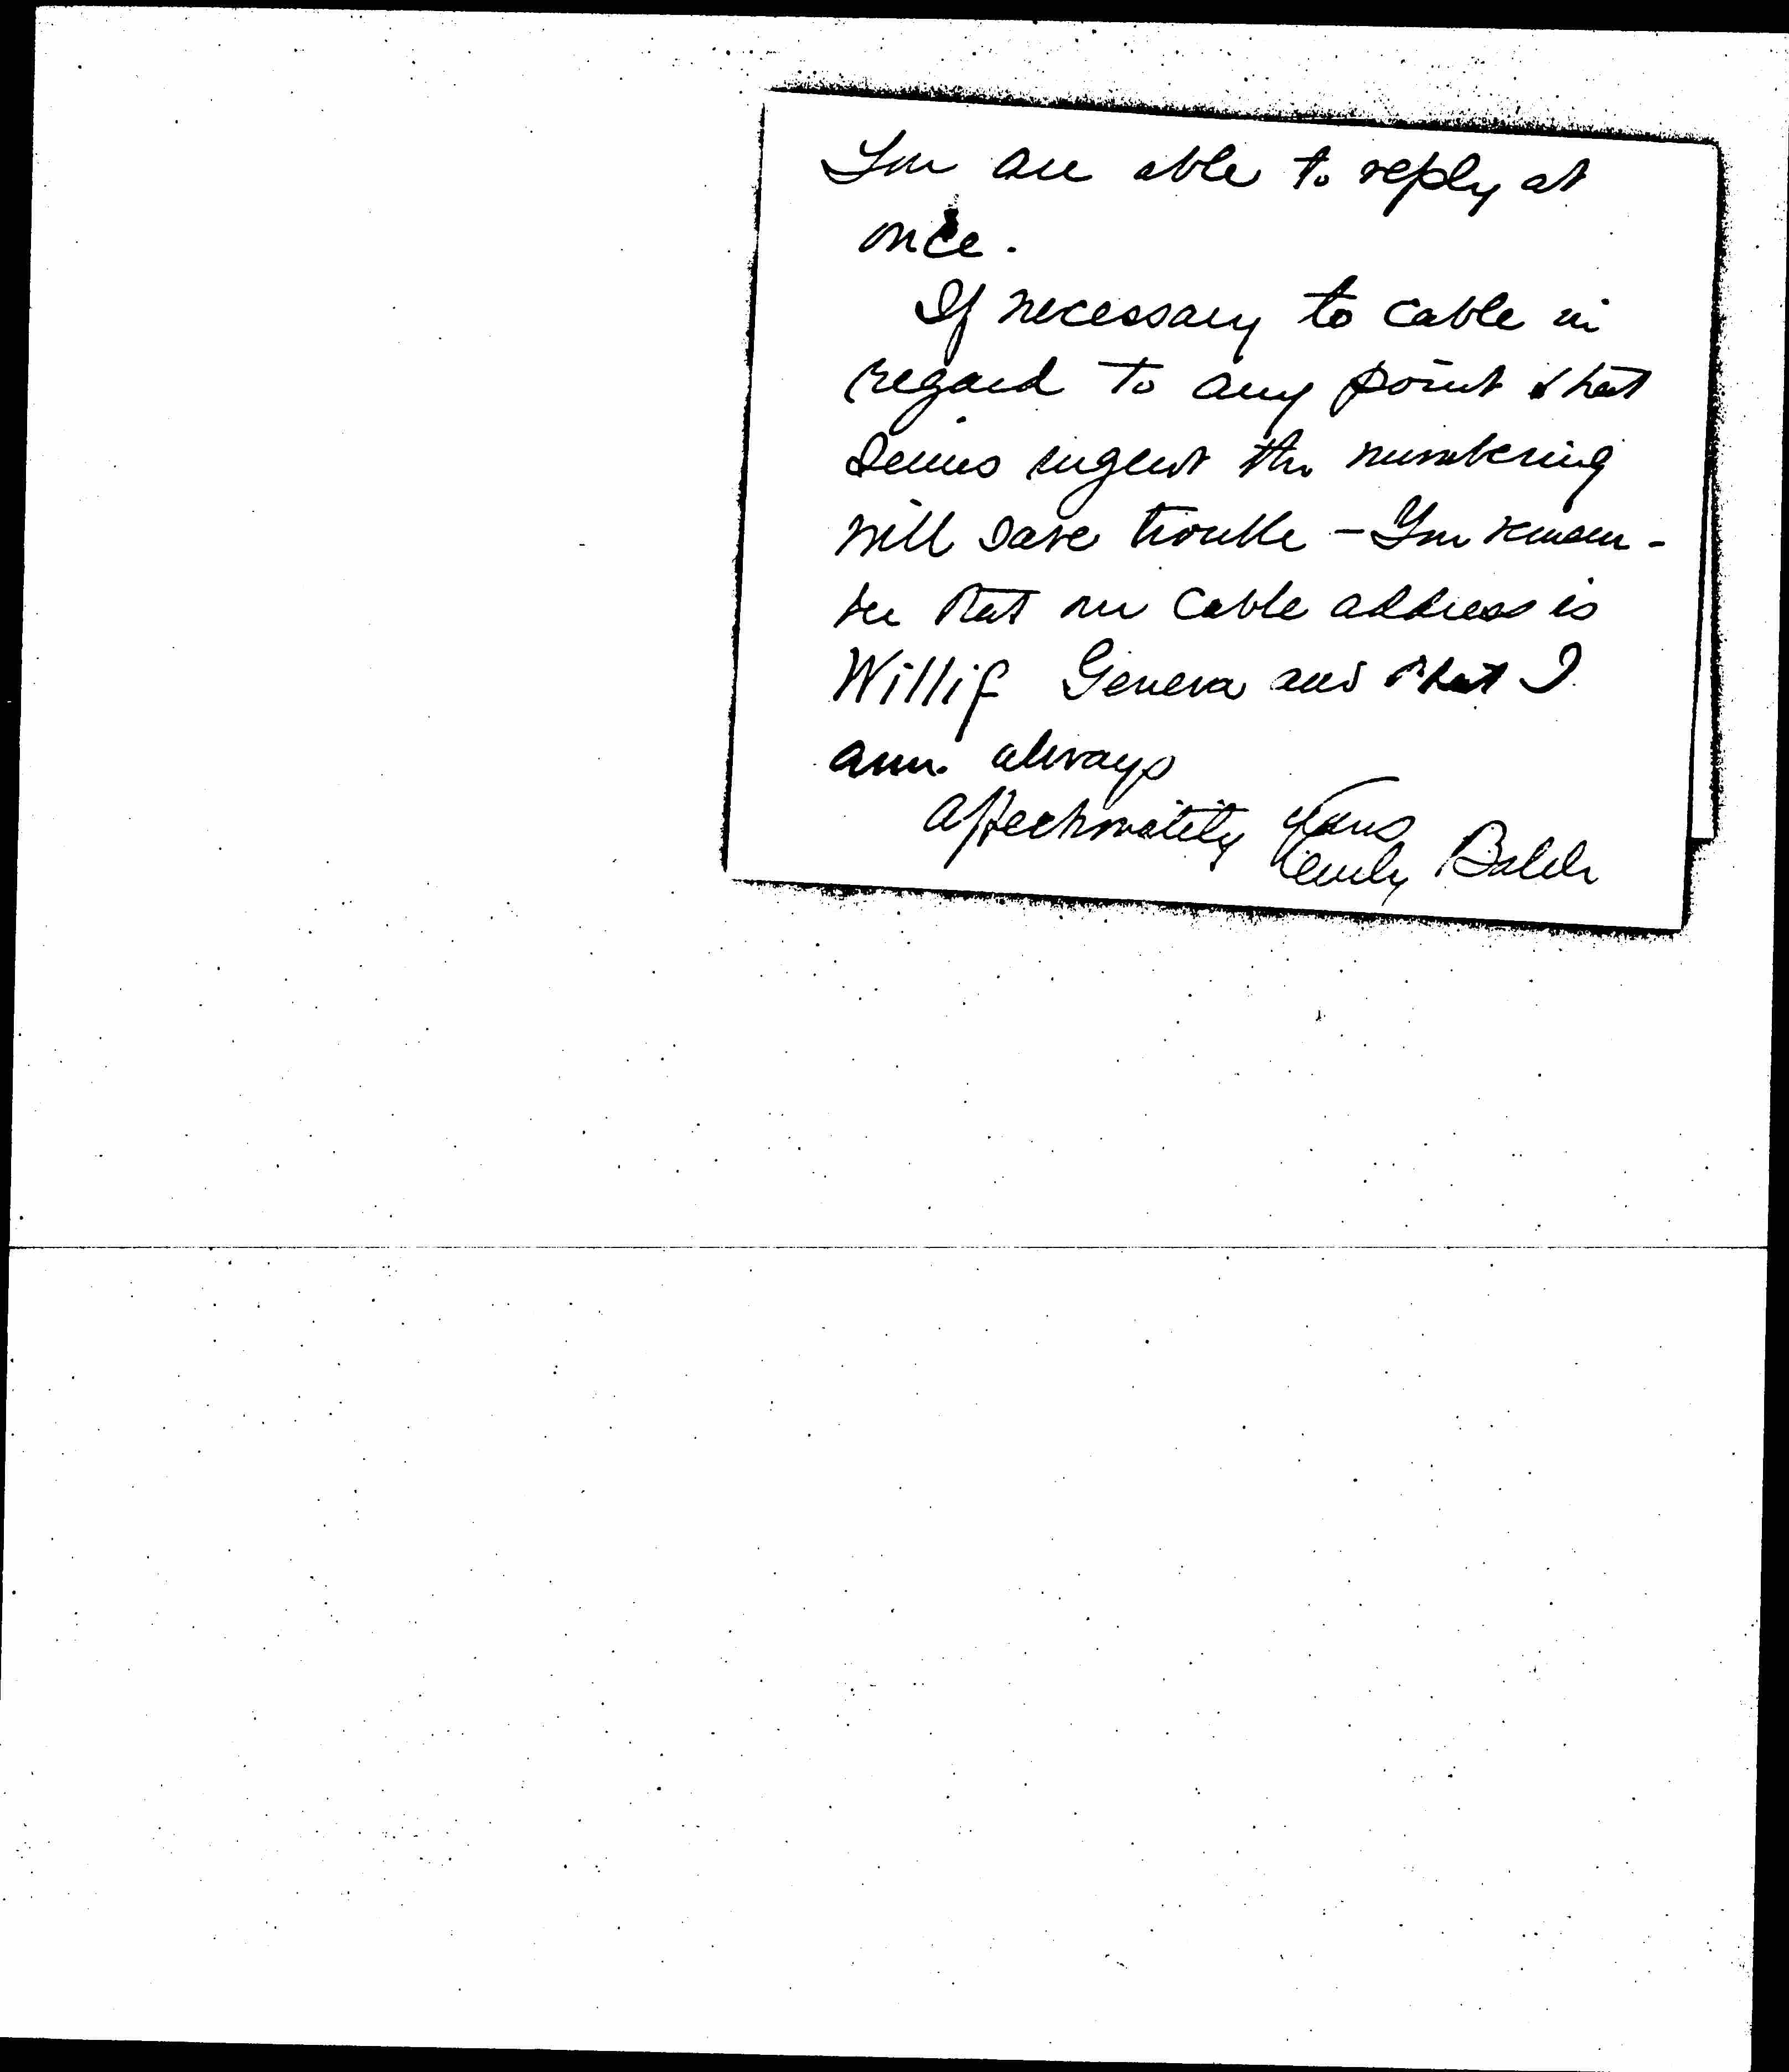 You are able to reply at
once.
If necessary to cable in
regard to any point that
seems urgent the numbering
will save trouble - You remem-
ber that our cable address is
Willif Geneva and that I
am always
affectionately yours
Emily Balch